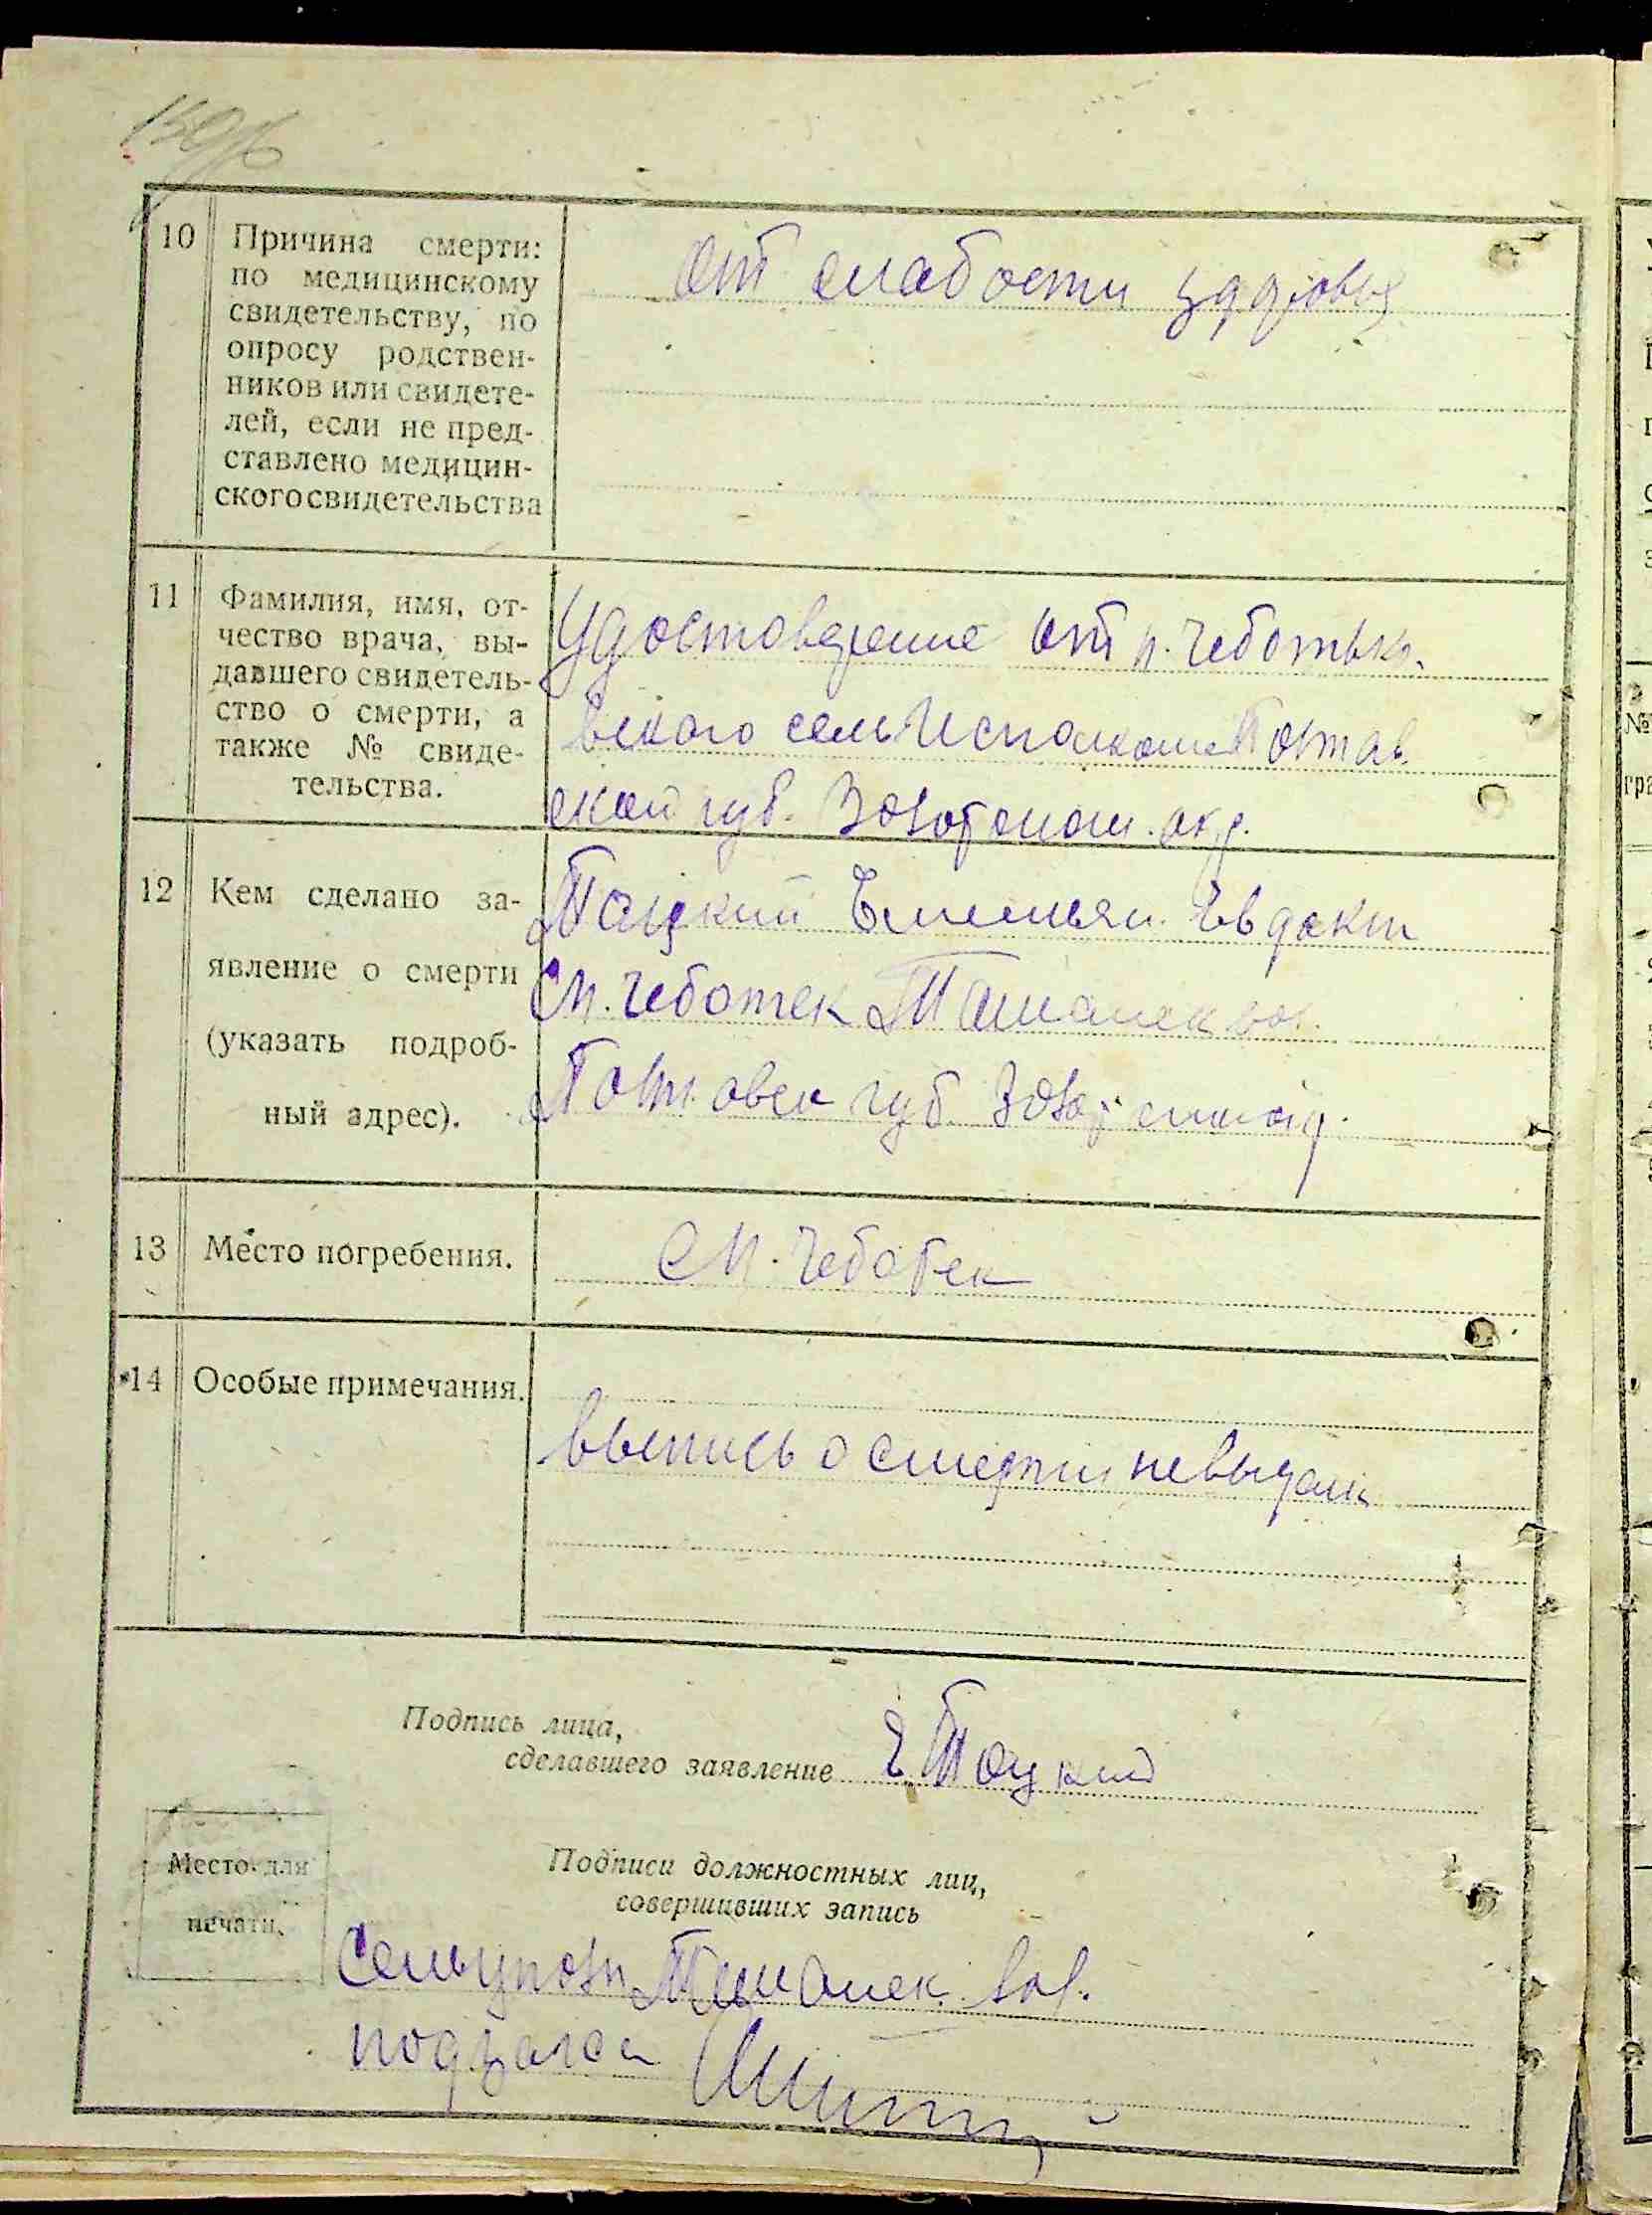 10 Причина смерти:
по медицинскому
свидетельству, по
опросу родствен-
ников или свидете-
лей, если не пред-
ставлено медицин-
ского свидетельства
от слабости здоровья
11 Фамилия, имя, от-
чество врача, вы-
давшего свидетель-
ство о смерти, а
также № свиде-
тельства.
Удостоверение от п. Чеботько.
вского сельисполкома Полтав
ской губ. Золотонош. окр.
12 Кем сделано за-
явление о смерти
(указать подроб-
ный адрес).
Тоцкий Емельян. Евдоки
Ст. Чеботьк
Полтавск губ Золотонош
13 Место погребения.
Чеботьк
14 Особые примечания.
выпись о смерти невыдали
Подпись лица,
сделавшего заявление Е Тоцкий
Место для
печати.
Подписи должностных лиц,
совершивших запись
вол.